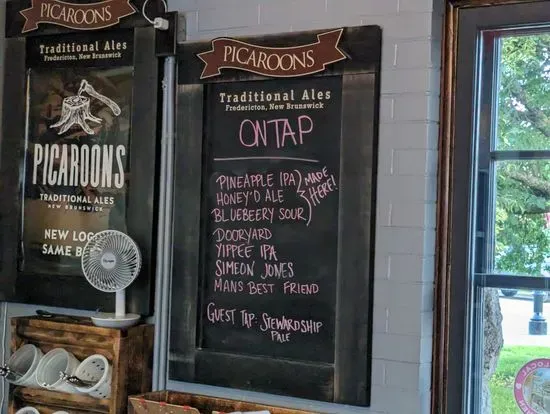 PICAROONS
Traditional Ales
Fredericton, New Brunswick
PICAROONS
TRADITIONAL ALES
NEW BRUNSWICK
NEW LOGO
SAME B
PICAROONS
Traditional Ales
Fredericton, New Brunswick
ON TAP
PINEAPPLE IPA
HONEY'D ALE
BLUEBEERY SOUR
MADE HERE!
DOORYARD
YIPPEE IPA
SIMEON JONES
MANS BEST FRIEND
GUEST TAP: STEWARDSHIP
PALE
LOCAL